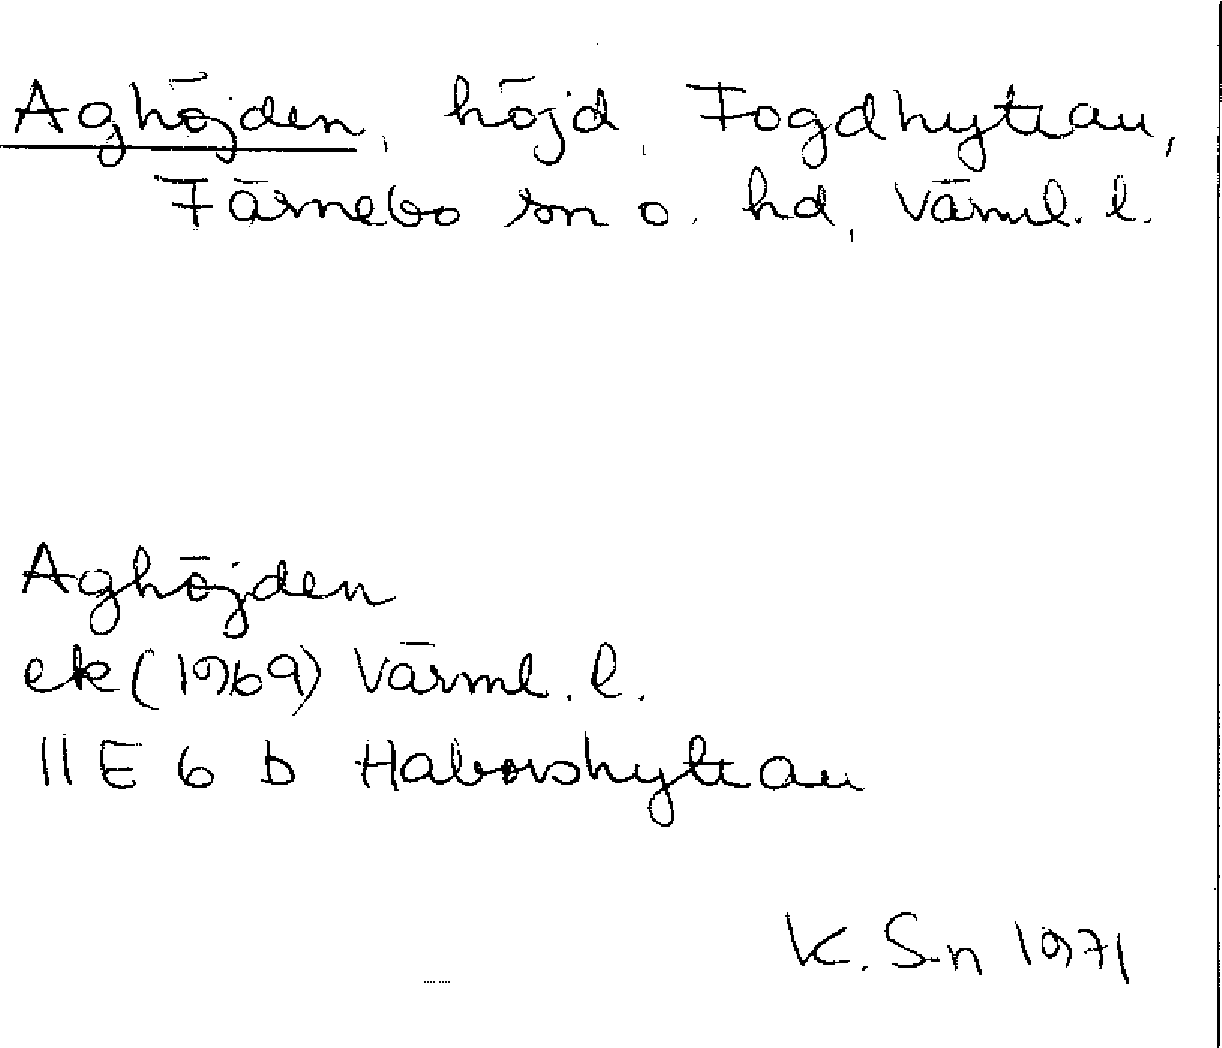 Aghöjden, höjd, Fogdhyttan,
Färnebo sn o. hd, Värml. l.
Aghöjden
ek (1969) Värml. l.
11 E 6 b Habovshyttan
K. S-n 1971